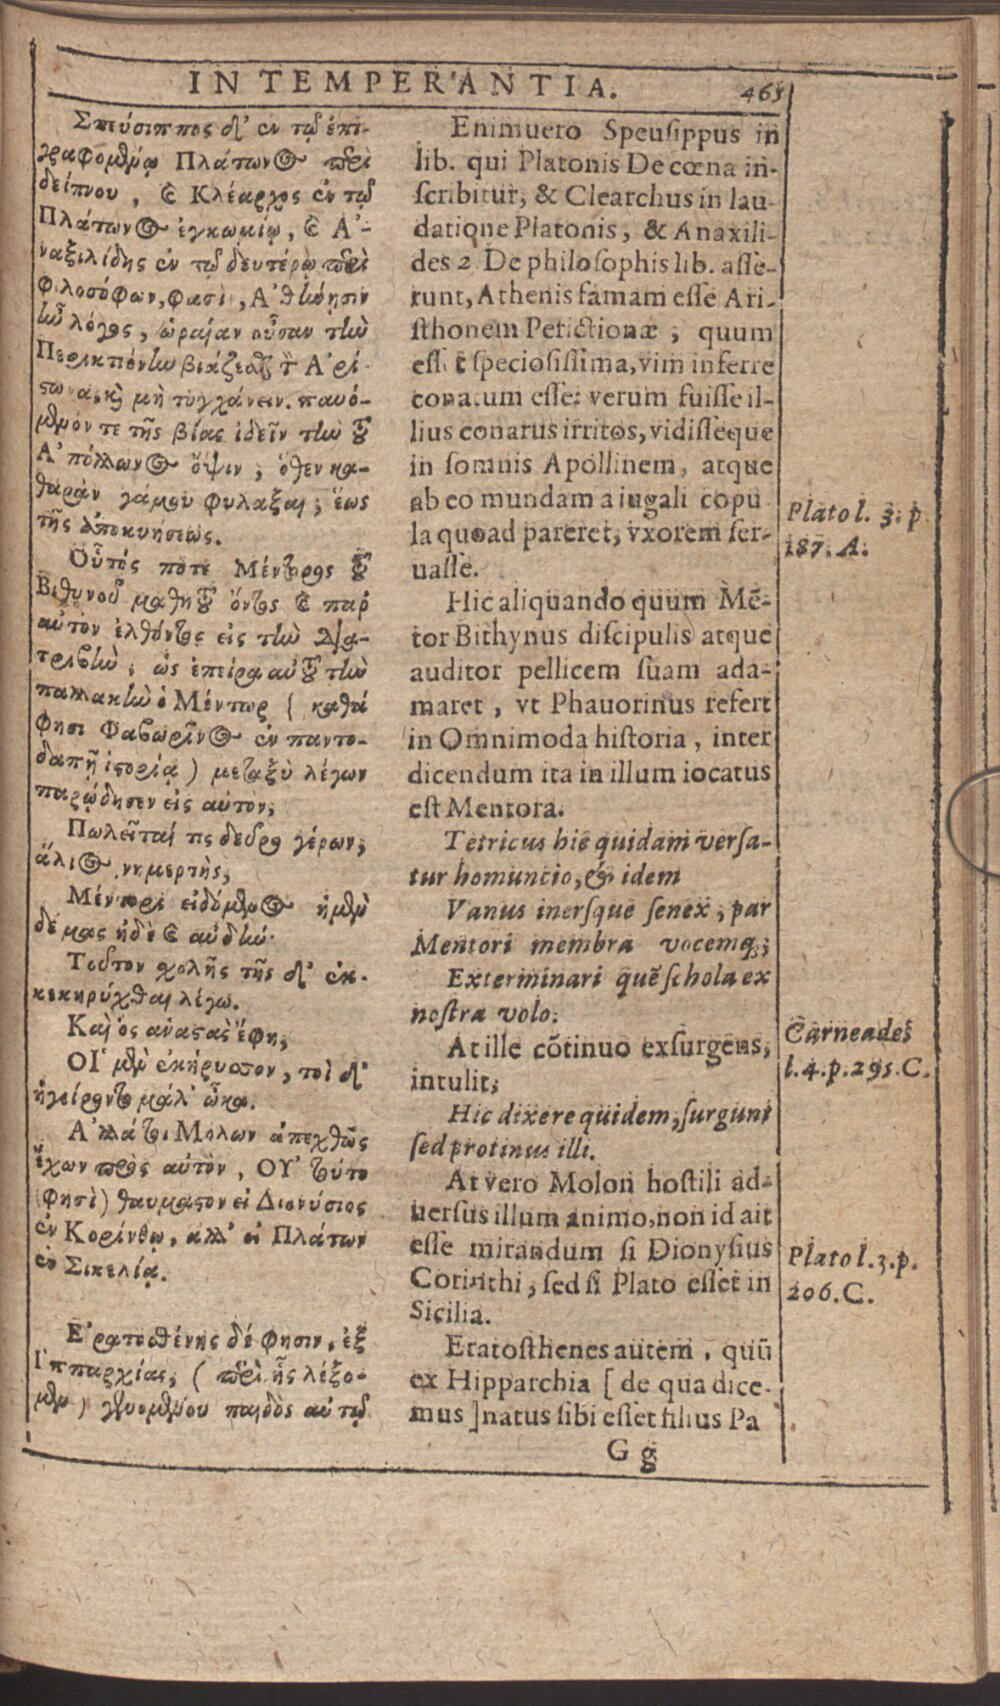 INTEMPERANTIA.
465
Σπεύσιππος δ' ἐν τῷ ἐπι-
γραφομθύῳ Πλάτωνος περὶ
δείπνου, καὶ Κλέαρχος ἐν τῷ
Πλάτωνος ἐγκωμίῳ, καὶ Α'-
ναξιλίδης ἐν τῷ δευτέρῳ περὶ
φιλοσόφων, φασὶ, Α'θήνησιν
ἦν λόγος, ὡραίαν οὖσαν τὴν
Περικτιόνην βιάζεσθαι τὸν Α'ρί-
στωνα, καὶ μὴ τυγχάνειν. παυό-
μενόν τε τῆς βίας ἰδεῖν τὴν τοῦ
Α'πόλλωνος ὄψιν, ὅθεν κα-
θαρὰν γάμου φυλάξαι, ἕως
τῆς ἀποκυήσεως.
Οὗτός ποτε Μέντορος τοῦ
Βιθυνοῦ μαθητοῦ ὄντος καὶ παρ'
αὐτὸν ἐλθόντος εἰς τὴν δια-
τριβὴν, ὡς ἐπείρα αὐτοῦ τὴν
παλλακὴν ὁ Μέντωρ (καθά
φησι Φαβωρῖνος ἐν παντο-
δαπῇ ἱστορίᾳ) μεταξὺ λέγων
παρῴδησεν εἰς αὐτὸν,
Πωλεῖταί τις δεῦρο γέρων,
ἅλιος νημερτὴς,
Μέντορι εἰδόμενος ἠμὲν
δέμας ἠδὲ καὶ αὐδὴν.
Τοῦτον σχολῆς τῆς δ' ἐκ-
κεκηρύχθαι λέγω.
Καὶ ὃς ἀναστὰς ἔφη,
ΟΙ' μὲν ἐκήρυσσον, τοὶ δ'
ἠγείροντο μάλ' ὦκα.
Α'λλά τοι Μόλων ἀπεχθῶς
ἔχων πρὸς αὐτὸν, ΟΥ' τοῦτο
(φησὶ) θαυμαστὸν εἰ Διονύσιος
ἐν Κορίνθῳ, ἀλλ' εἰ Πλάτων
ἐν Σικελίᾳ.
Ε'ρατοσθένης δέ φησιν, ἐξ
Ι'ππαρχίας, (περὶ ἧς λέξο-
μεν) γενομένου παιδὸς αὐτῷ
Enimuero Speusippus in
lib. qui Platonis De cœna in-
scribitur, & Clearchus in lau-
datione Platonis, & Anaxili-
des 2. De philosophis lib. asse-
runt, Athenis famam esse Ari-
sthonem Perictionæ, quum
esset speciosissima, vim inferre
conatum esse: verum fuisse il-
lius conatus irritos, vidisseque
in somnis Apollinem, atque
ab eo mundam a iugali copu
la quoad pareret, vxorem ser-
uasse.
Hic aliquando quum Mē-
tor Bithynus discipulis atque
auditor pellicem suam ada-
maret, vt Phauorinus refert
in Omnimoda historia, inter
dicendum ita in illum iocatus
est Mentora.
Tetricus hic quidam versa-
tur homuncio, & idem
Vanus inersque senex, par
Mentori membra vocemq;
Exterminari quē schola ex
nostra volo.
At ille cōtinuo exsurgens,
intulit;
Hic dixere quidem, surgunt
sed protinus illi.
At vero Molon hostili ad-
uersus illum animo, non id ait
esse mirandum si Dionysius
Corinthi, sed si Plato esset in
Sicilia.
Eratosthenes autem, quū
ex Hipparchia [de qua dice-
mus] natus sibi esset filius Pa
G g
Plato l. 3. p
187. A.
Carneades
l. 4. p. 295. C.
Plato l. 3. p.
206. C.